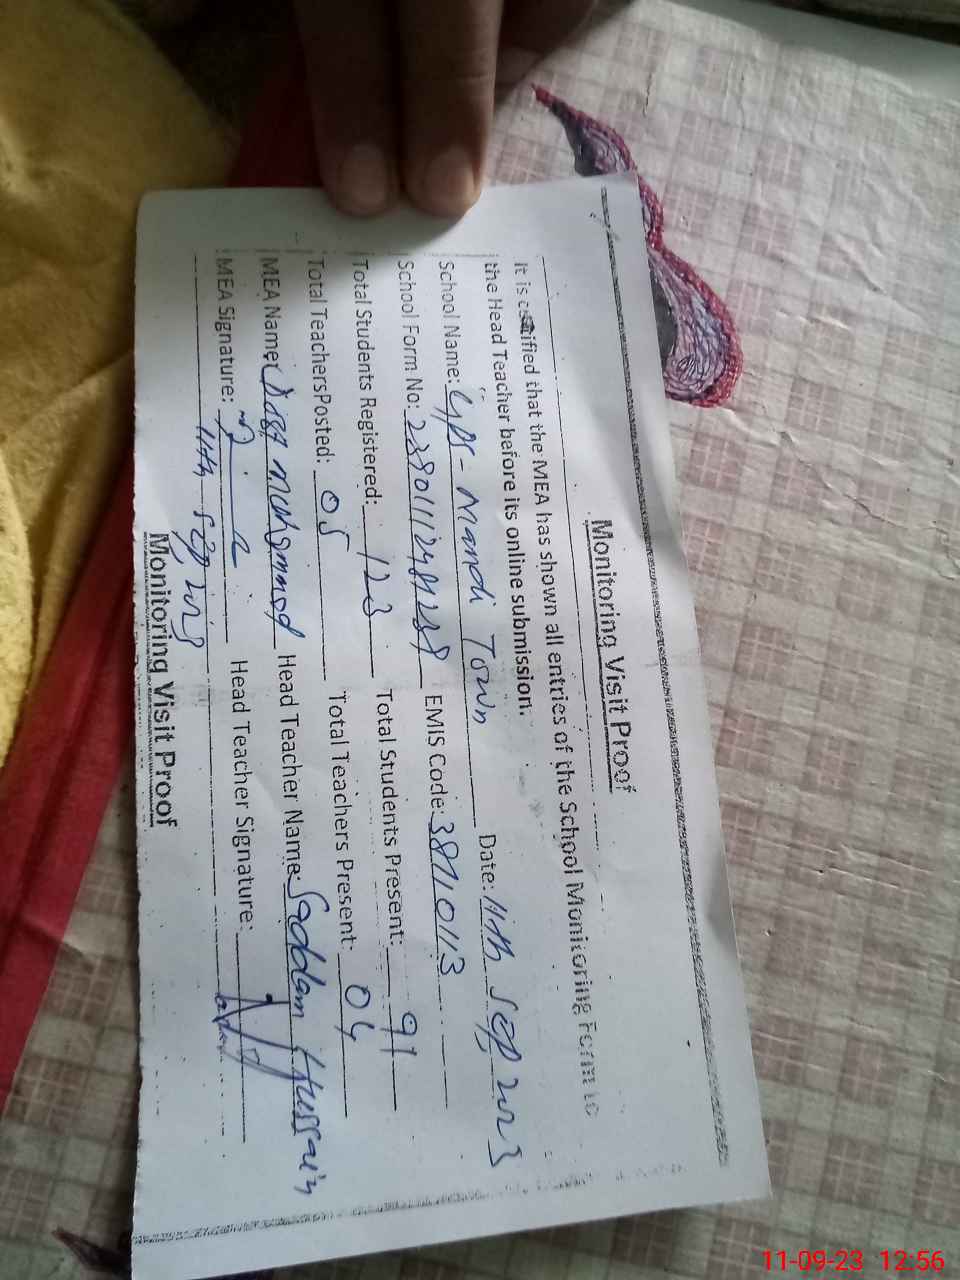 Monitoring Visit Proof
It is certified that the MEA has shown all entries of the School Monitoring Form to
the Head Teacher before its online submission.
School Name: GPS - Mandi Town Date: 11th Sep 2023
School Form No: EMIS Code: 38710113
Total Students Registered: 123 Total Students Present: 91
Total TeachersPosted: 05 Total Teachers Present: 04
MEA Name: Head Teacher Name: Saddam Hussain
MEA Signature: Head Teacher Signature:
11th Sep 2023
Monitoring Visit Proof
11-09-23 12:56